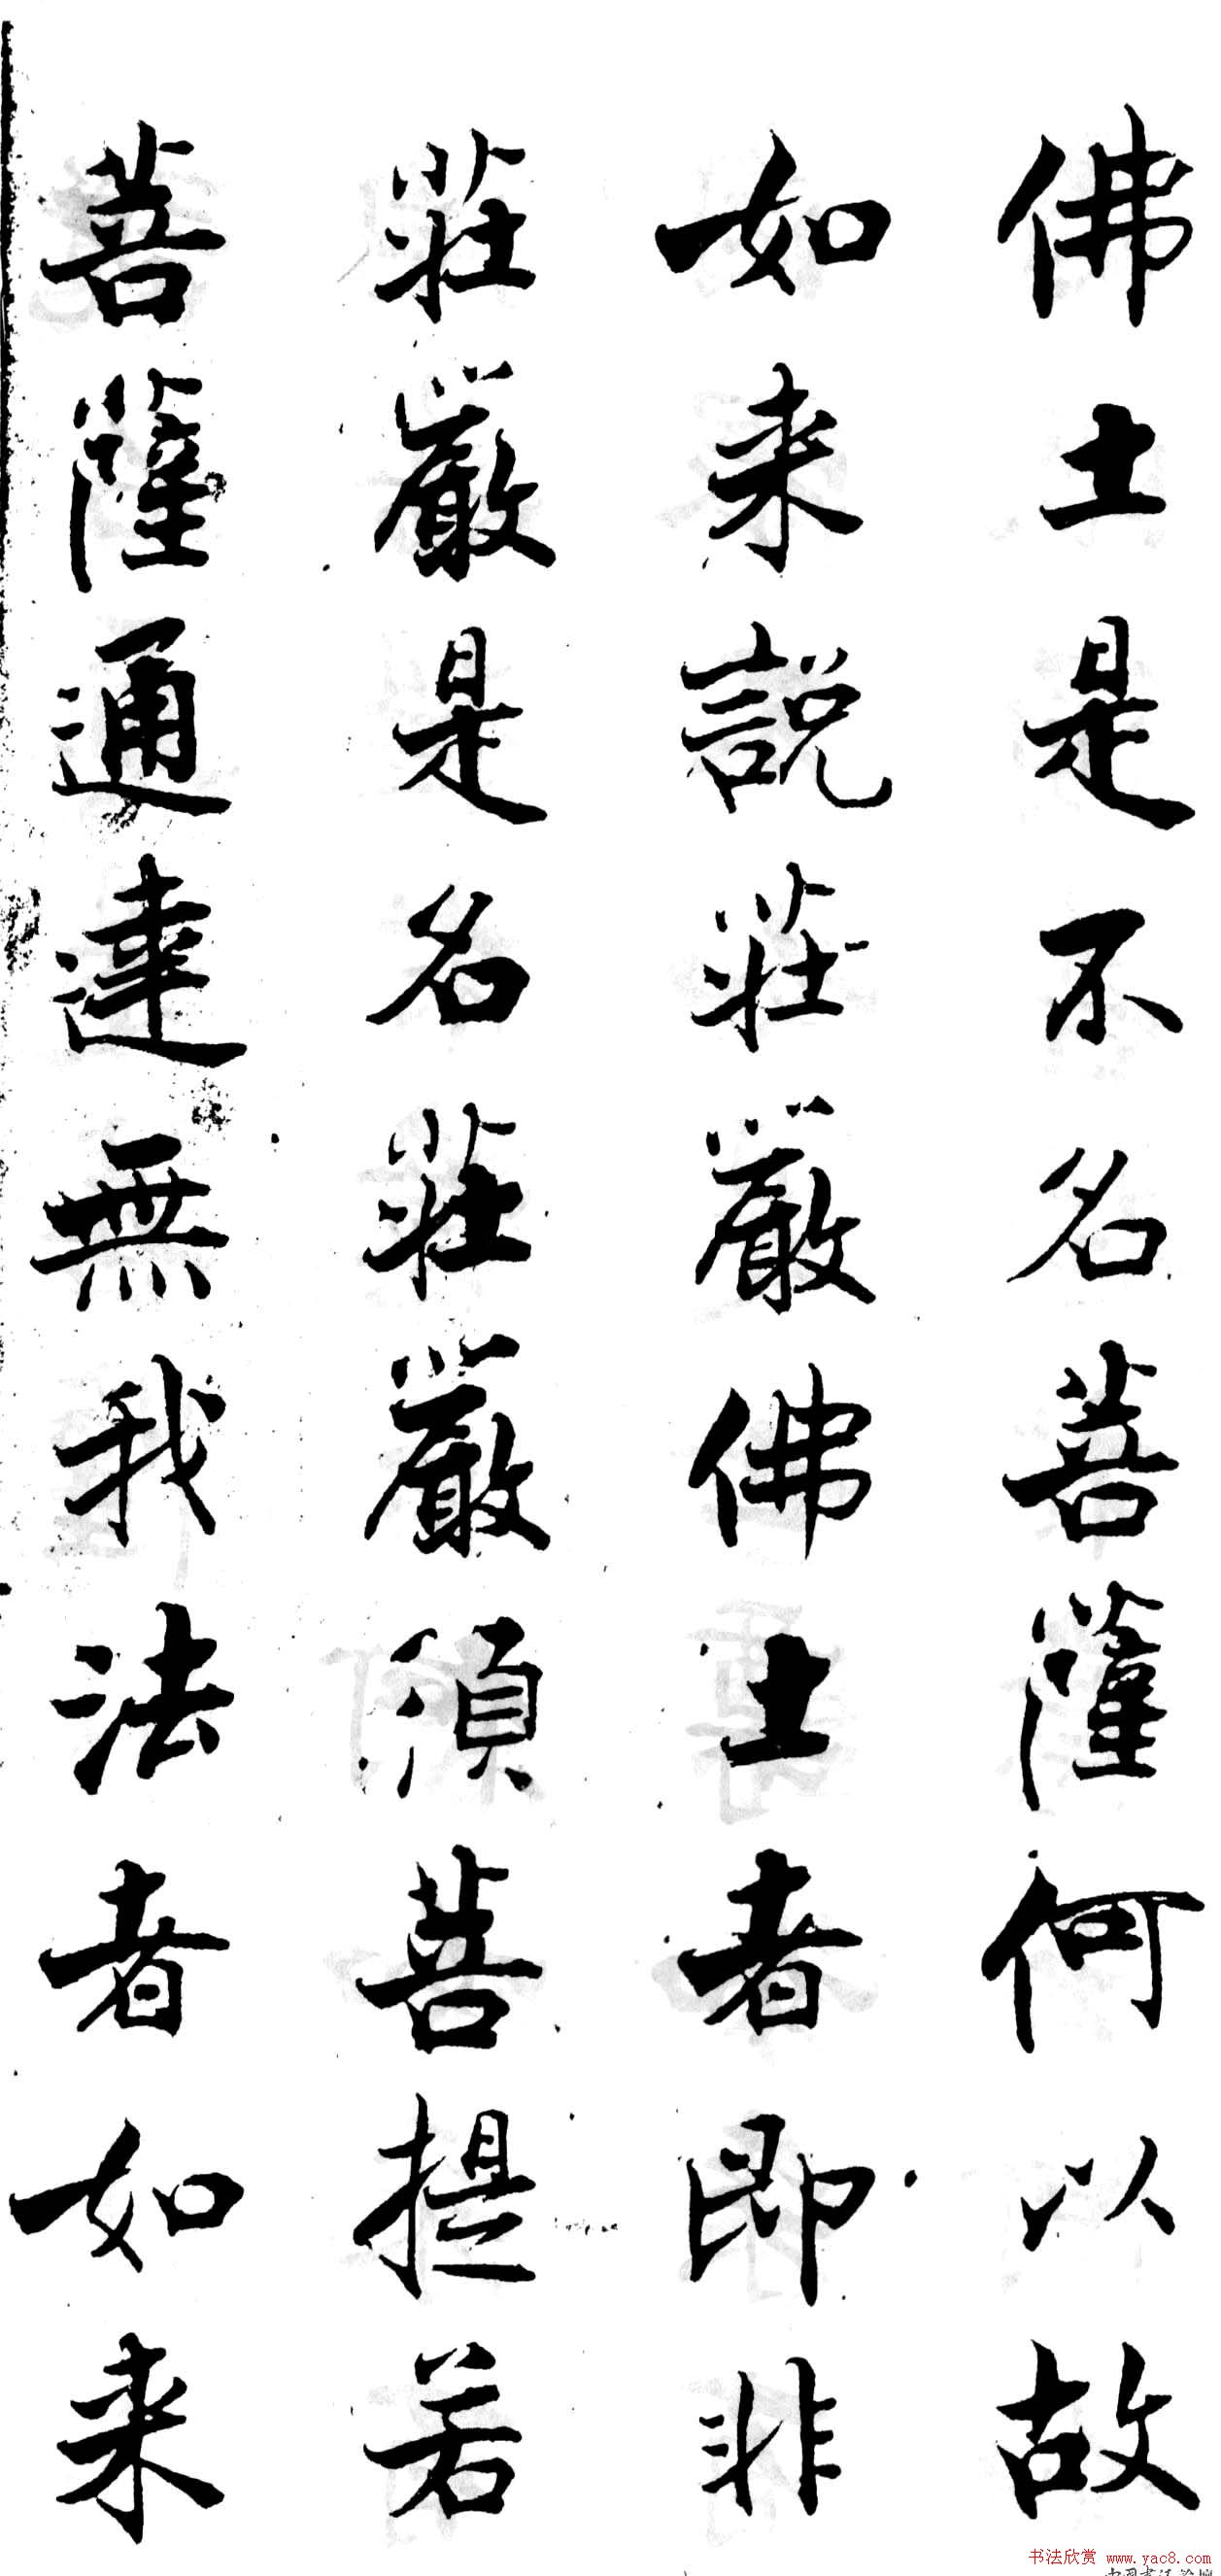 佛土是不名菩薩何以故
如来説莊嚴佛土者即非
莊嚴是名莊嚴須菩提若
菩薩通達無我法者如来
书法欣赏 www.yac8.com